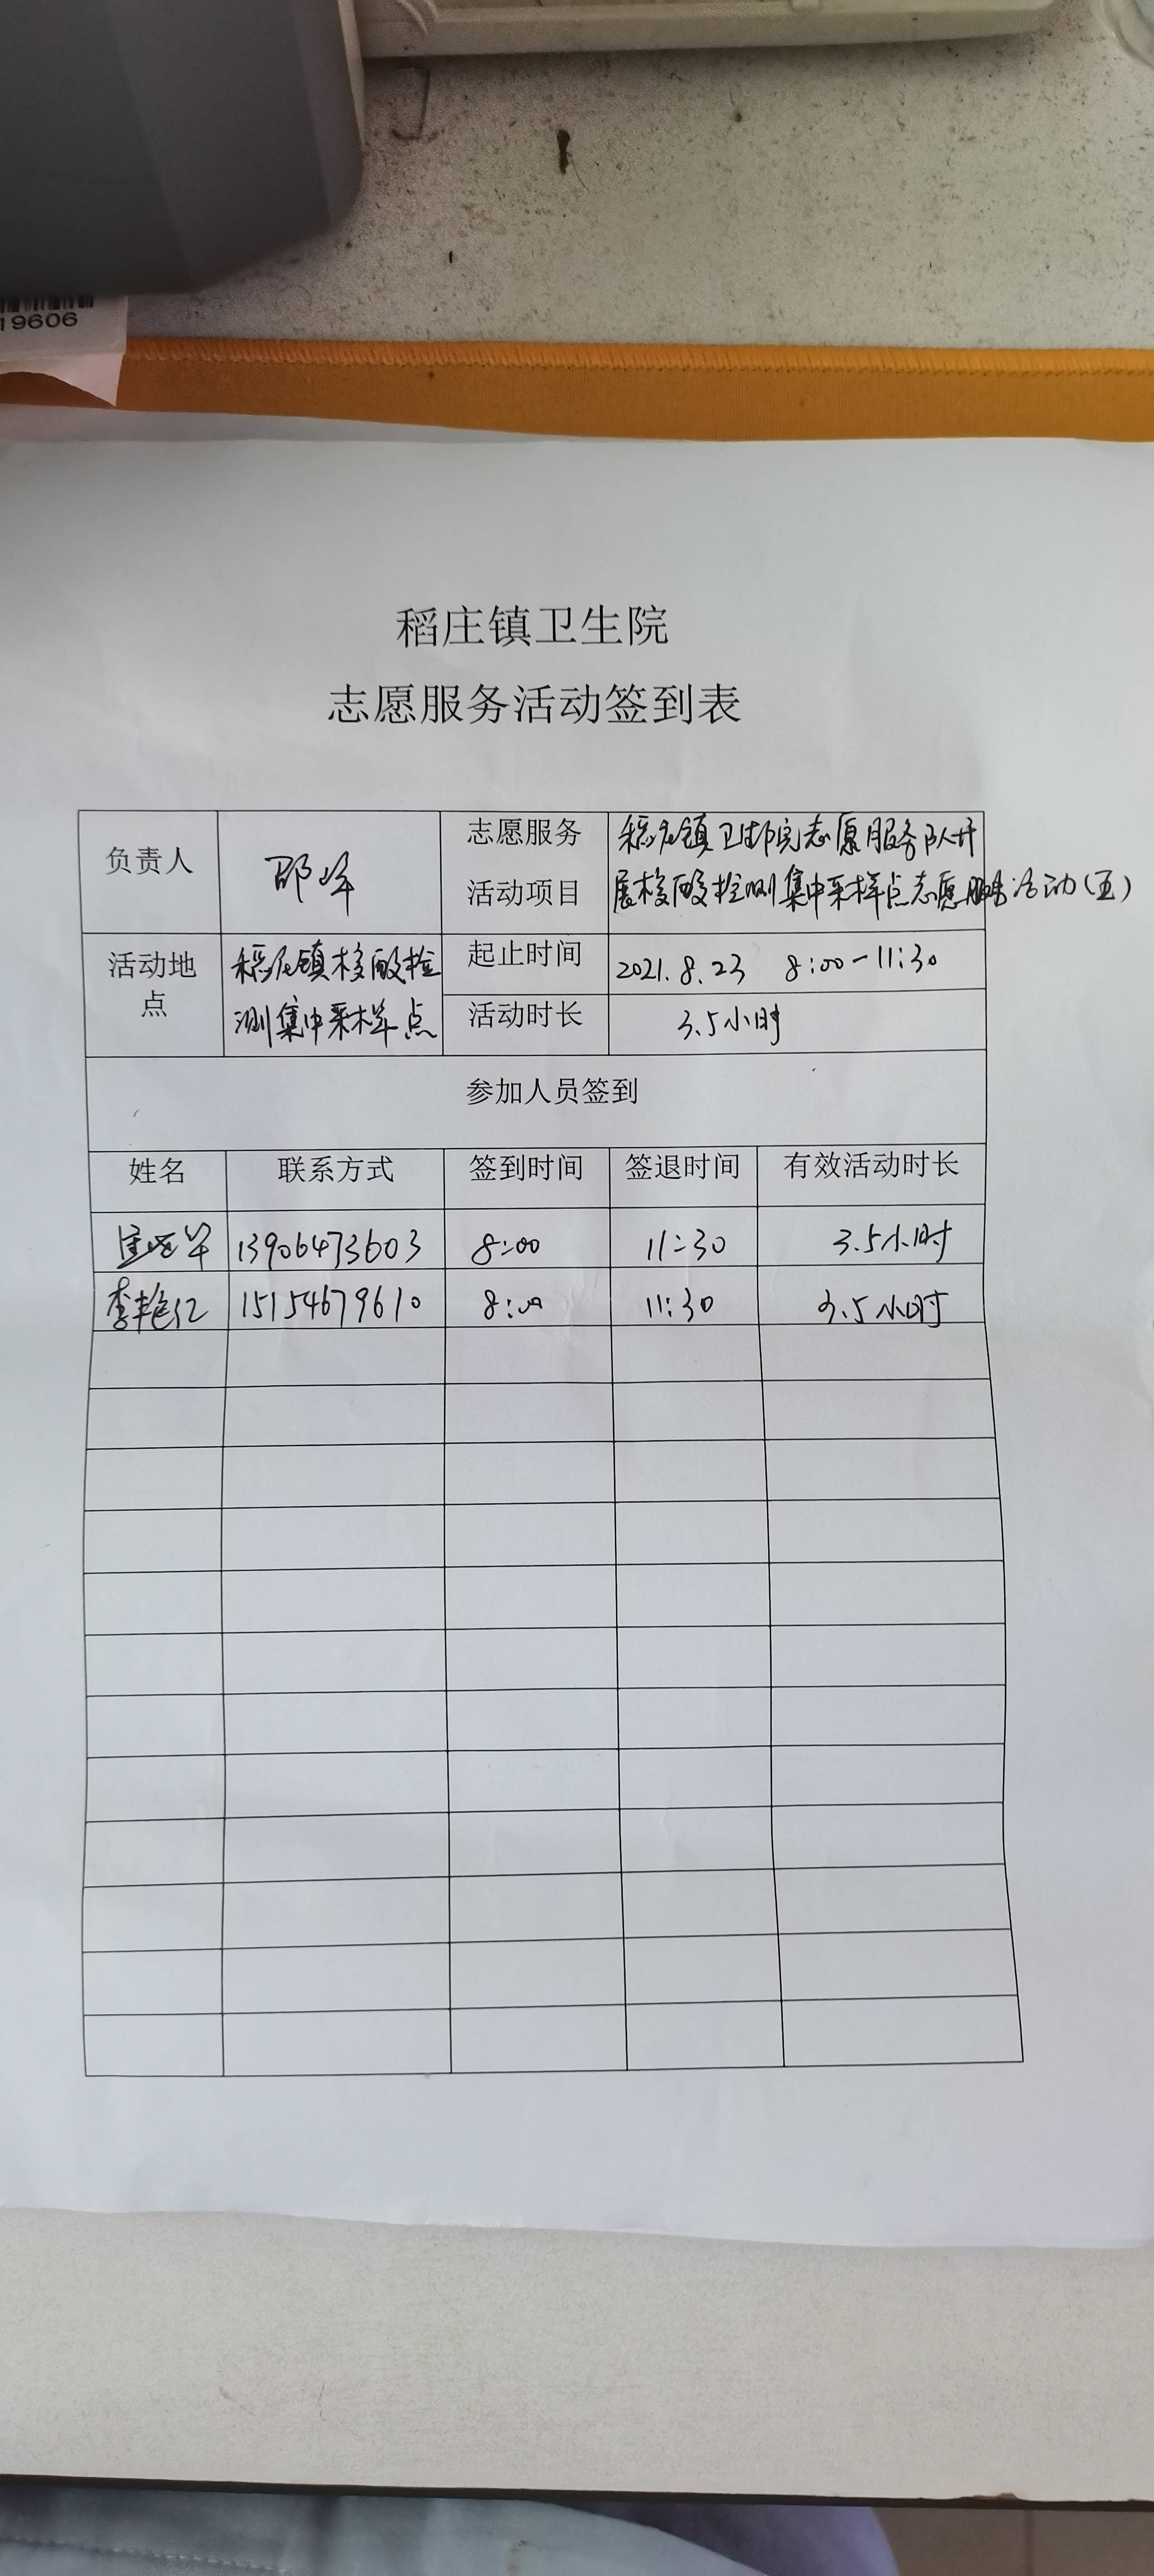 19606
稻庄镇卫生院
志愿服务活动签到表
负责人 邵峰 志愿服务活动项目 稻庄镇卫生院志愿服务队开
展核酸检测集中采样点志愿服务活动(五)
活动地点 稻庄镇核酸检
测集中采样点
起止时间 2021.8.23 8:00-11:30
活动时长 3.5小时
参加人员签到
姓名 联系方式 签到时间 签退时间 有效活动时长
13906473603 8:00 11:30 3.5小时
李艳红 15154679610 8:00 11:30 3.5小时